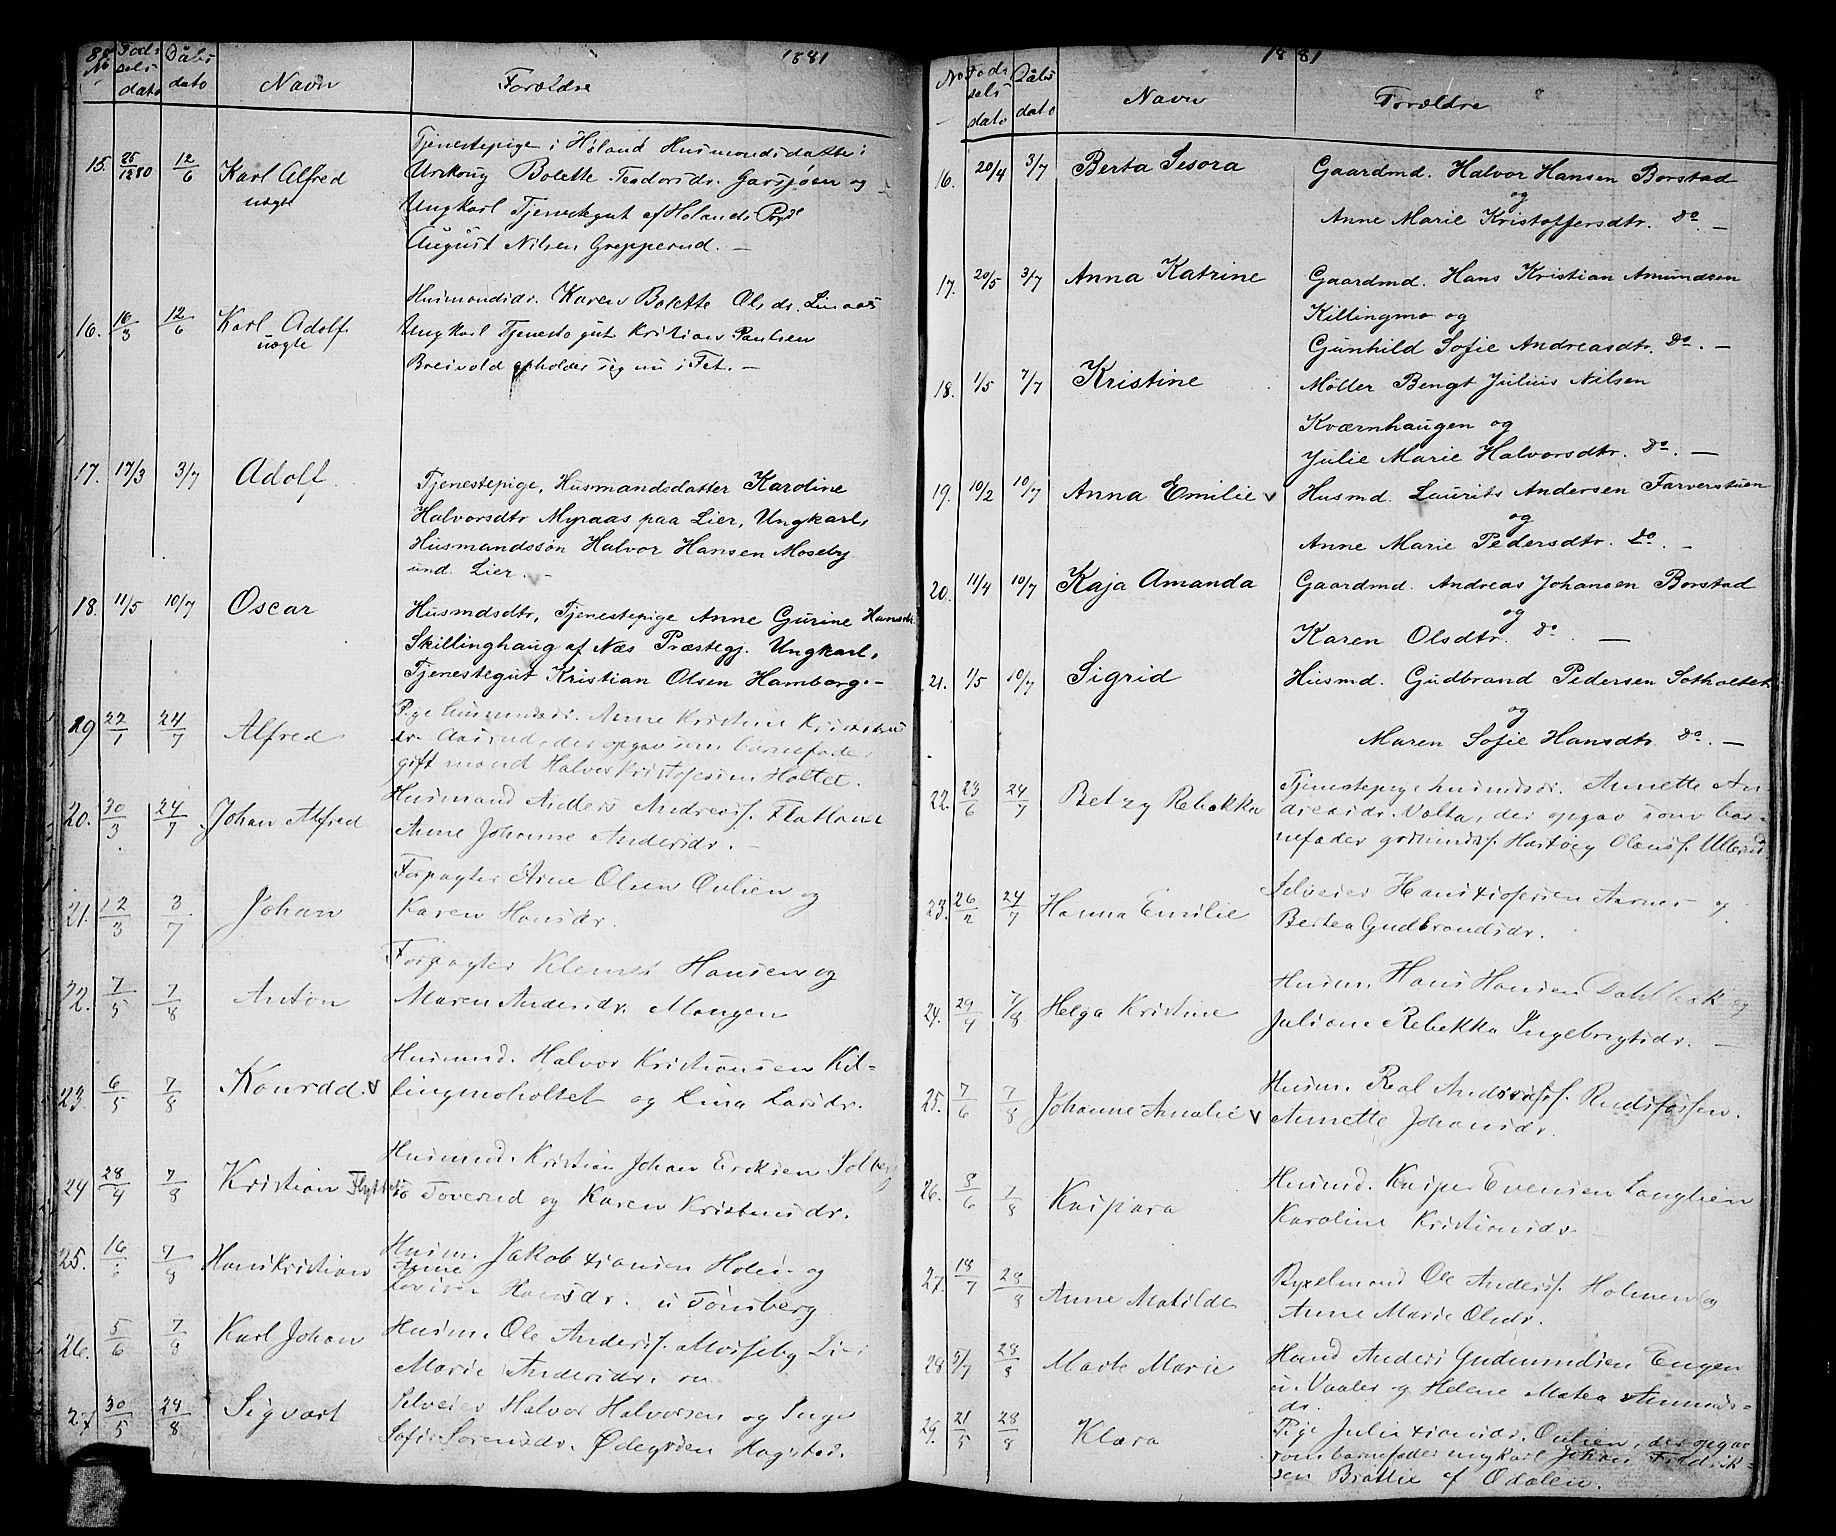 88 1881
No Fød- sels dato Dåbs dato Navn Forældre
15. 25/12 80 12/6 Karl Alfred uægte
Tjenestepige i Høland Husmandsdatter i
Urskoug Bolette Teodorsdr. og
Ungkarl Tjenestegut af Hølands
August Nilsen Grepperud. —
16. 16/3 12/6 Karl Adolf uægte
Husmandsdr. Karen Bolette Olsdr.
Ungkarl Tjenestegut Kristian Paulsen
Breivold opholder sig nu i Fet. —
17. 17/3 3/7 Adolf
Tjenestepige, Husmandsdatter Karoline
Halvorsdtr Myraas paa Lier, Ungkarl,
Husmandssøn Halvor Hansen Moseby
und. Lier. —
18. 11/5 10/7 Oscar
Husmdsdtr, Tjenestepige Anne Gurine Hansdtr
Skillinghaug af Næs Præstegj. Ungkarl,
Tjenestegut Kristian Olsen Hamborg. —
19 22/1 24/7 Alfred
Pige husmdsdr. Anne Kristine
dr. Aasrud, der opgav som barnefader
gift mand Halvor Kristofersen Holtet.
20. 30/3 24/7 Johan Alfred
Husmand Anders Andreass.
Anne Johanne Andersdr. —
21. 12/3 3/7 Johan
Forpagter Arne Olsen Oulien og
Karen Hansdr.
22. 7/5 7/8 Anton
Forpagter Klemet Hansen og
Maren Andersdr. Mangen
23. 6/5 7/8 Konrad. v
Husmd. Halvor Kristiansen Kil-
lingmoholtet og Lina Larsdr.
24 28/4 7/8 Kristian Flyttet
Husmd. Kristian Johan Eriksen Solberg
to Toverud og Karen Kristensdr.
25. 16/ 7/8 Hans Kristian
Husm. Jakob Xtiansen og
Anne
Lovise Hansdr. u Tønsberg
26. 5/6 7/8 Karl Johan
Husm. Ole Anderss. Mosseby Lier
Marie Andersdr.
27 30/5 28/8 Sigvart
Selveier Halvor Halvorsen og Inger
Sofie Sørensdr. Ødegården Hogstad.
1881
No Fød- sels dato Dåbs dato Navn Forældre
16. 20/4 3/7 Berta Isora
Gaardmd. Halvor Hansen Borstad
og
Anne Marie Kristoffersdtr. Do. —
17. 20/5 3/7 Anna Katrine
Gaardmd. Hans Kristian Amundsen
Killingmo og
Gunhild Sofie Andreasdtr. Do. —
18. 1/5 7/7 Kristine
Møller Bengt Julius Nilsen
Kværnhaugen og
Julie Marie Halvorsdtr. Do. —
19. 10/2 10/7 Anna Emilie v
Husmd. Laurits Andersen Farverstuen
og
Anne Marie Pedersdtr. Do. —
20. 11/4 10/7 Kaja Amanda
Gaardmd. Andreas Johansen Borstad
og
Karen Olsdtr. Do. —
21. 1/5 10/7 Sigrid
Husmd. Gudbrand Pedersen Sotholtet
og
Maren Sofie Hansdtr. Do. —
22. 23/6 24/7 Betzy Rebekka
Tjenestepige husmdsdr. Annette An-
dreasdr. Valta, der opgav som bar-
nefader grdmds. Hartvig Olauss. Ullerud
23. 26/2 24/7 Hanna Emilie
Selveier Hans Xtofersen Aarnes og
Bertea Gudbrandsdr.
24. 29/4 7/8 Helga Kristine
Husm. Hans Hansen Dahlbak og
Juliane Rebekka Ingebrigtsdr. —
25. 7/6 7/8 Johanne Amalie v
Husm. Andreass. Rudsfossen.
Annette Johansdr.
26. 8/6 7/8 Kaspara
Husmd. Kasper Evensen Langlien
Karoline Kristiansdr
27. 18/7 28/8 Anne Matilde
Byxelmand Ole Anderss. Holmen og
Anne Marie Olsdr.
28 5/7 28/8 Marte Marie
Hand Anders Gudmundsen Engen
u. Vaaler og Helene Matea Amunds-
dr.
29. 21/5 28/8 Klara
Pige Julie Xtiansdr. Oulien, der opgav
som barnefader ungkarl Johan Fredrik-
sen Brattlie af Odalen.